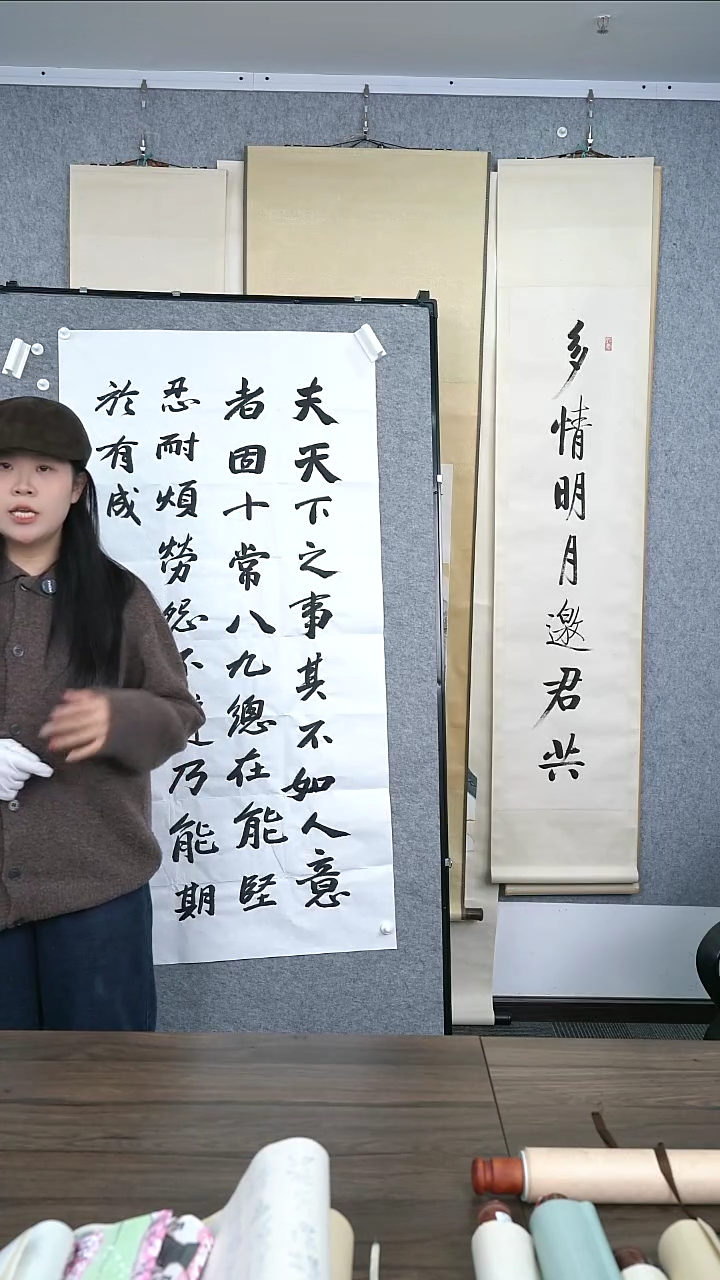 多情明月邀君共
夫天下之事其不如人意
者固十常八九總在能堅
忍耐煩勞怨不乃能期
於有成